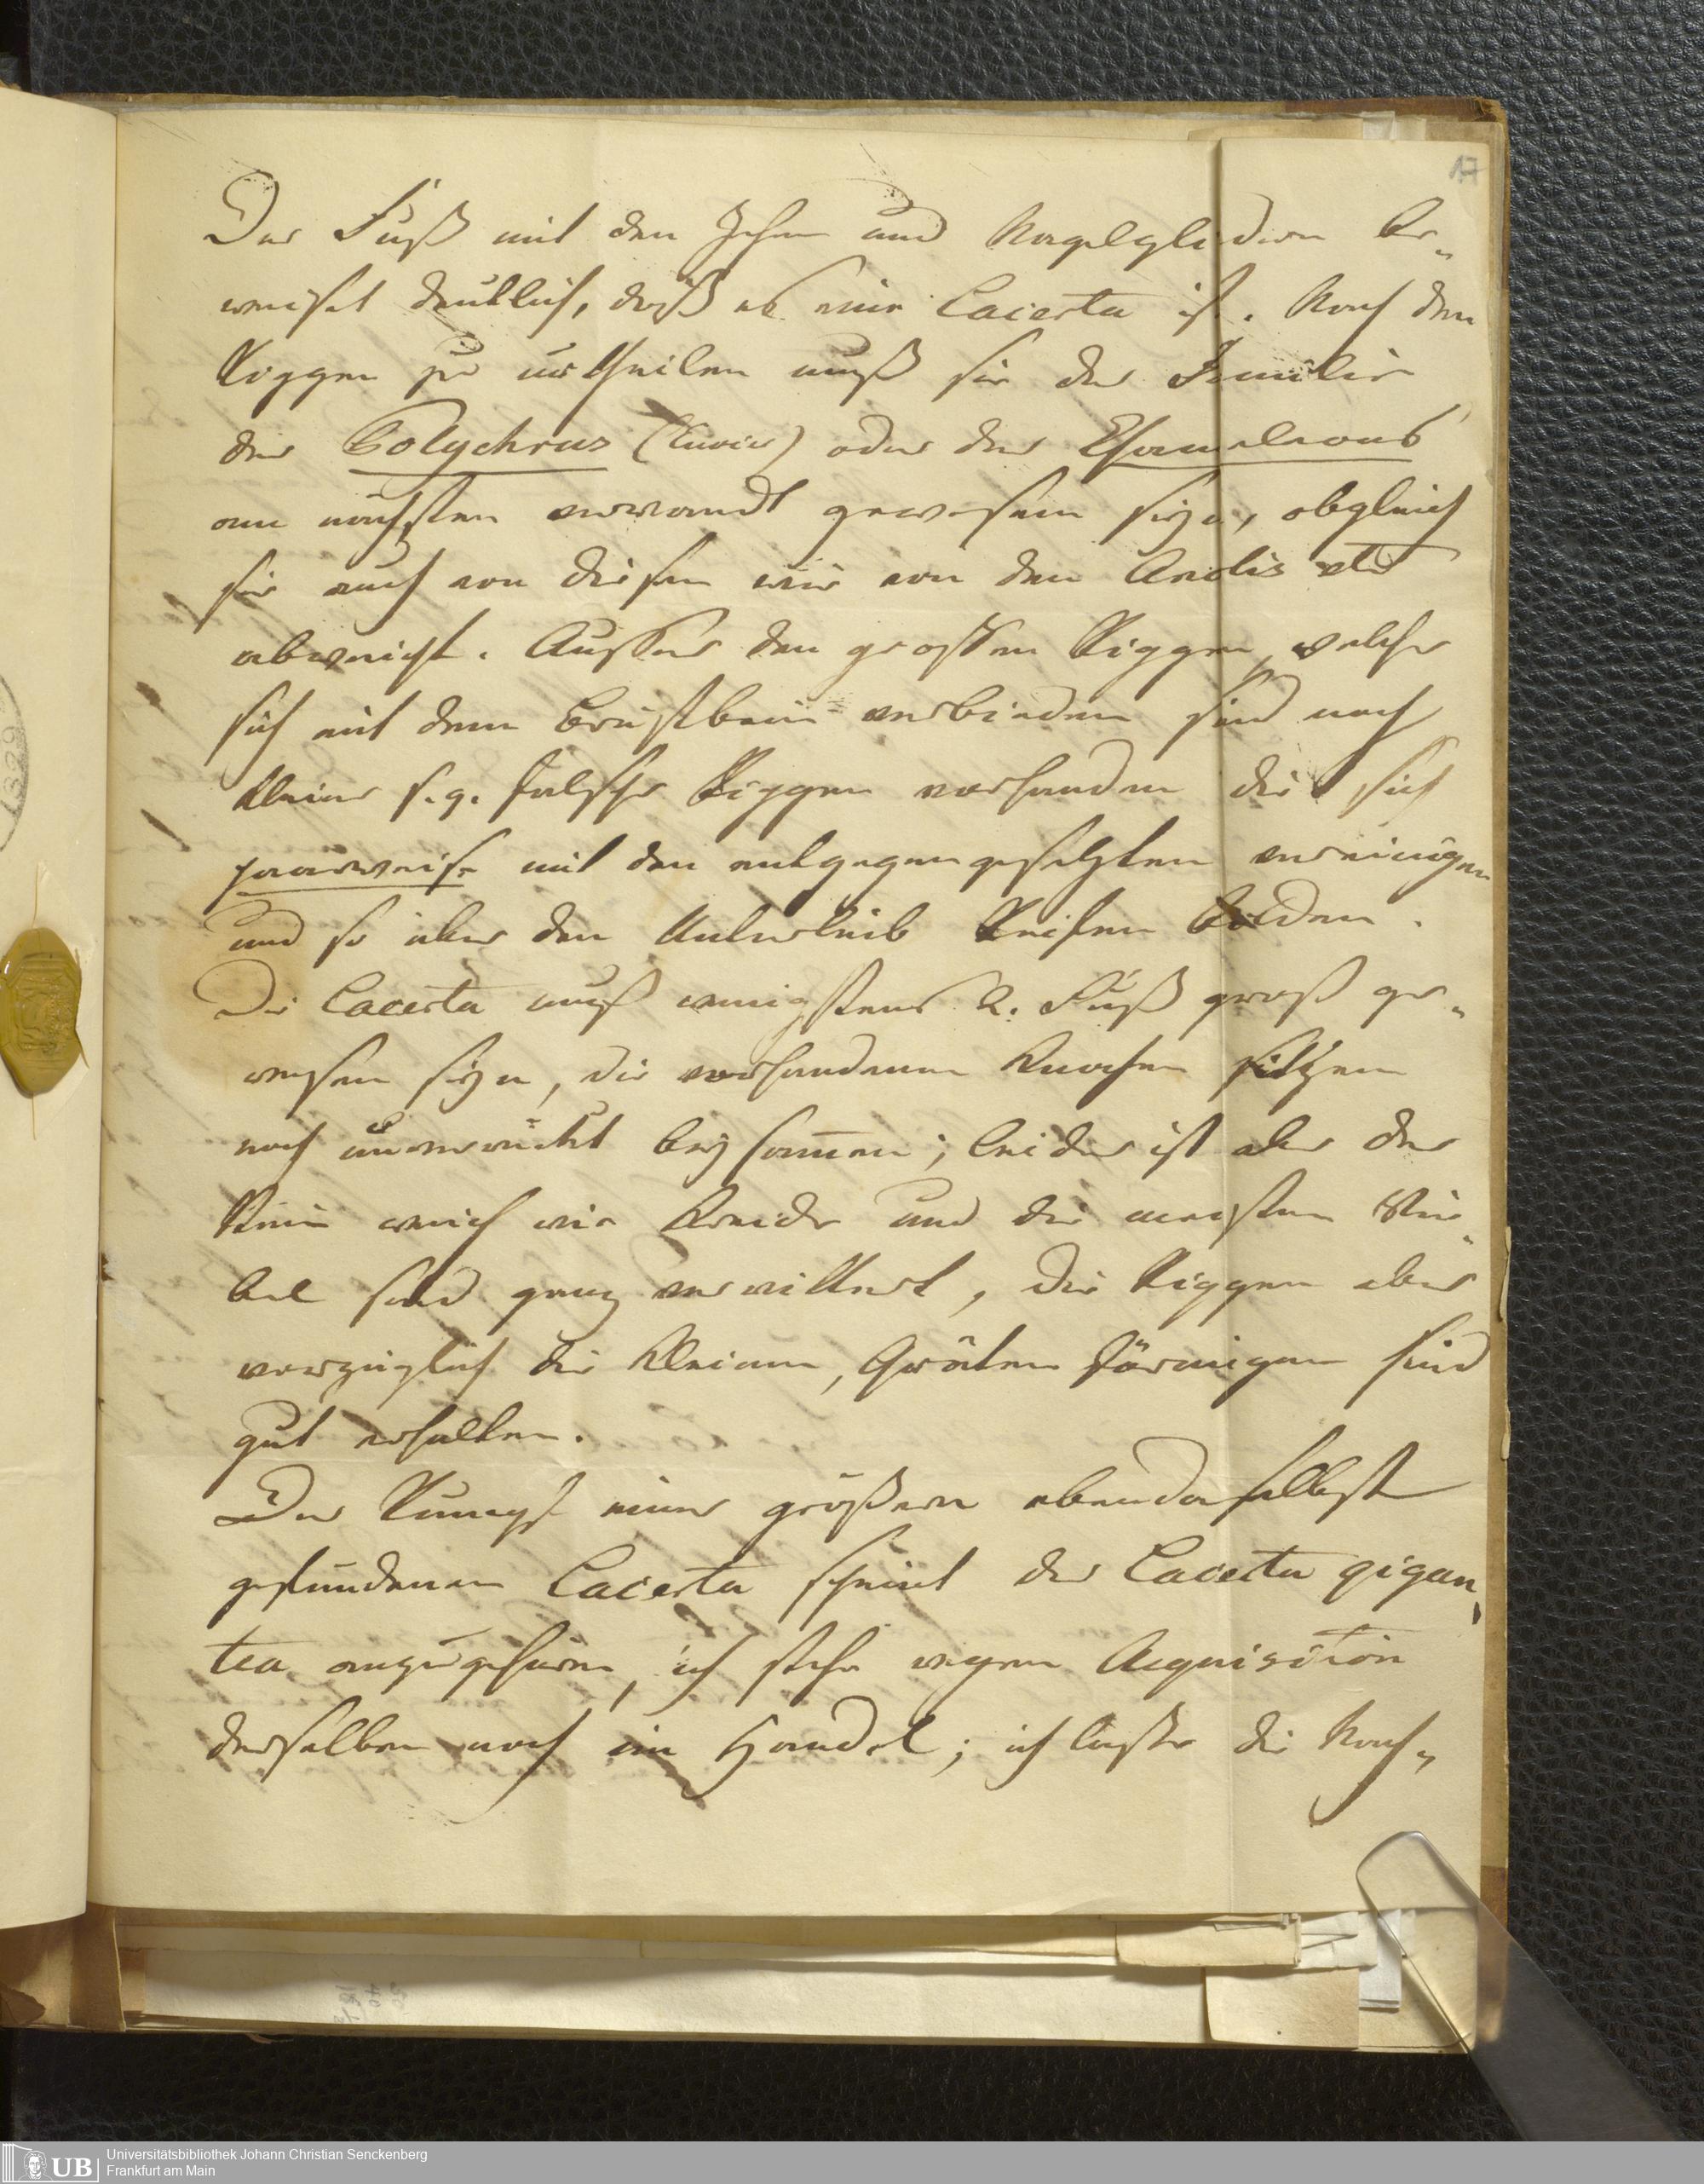 17
Der Fuß mit den Zehen und Nagelgliedern be-
weiset deutlich, daß es eine Lacerta ist. Nach den
Rippen zu urtheilen muß sie der Familie
der Polychrus (Cuvier) oder der Chamaeleons
am nächsten verwandt gewesen seyn, obgleich
sie auch von diesen wie von den Anolis etc
abweicht. Ausser den grossen Rippen, welche
sich mit dem Brustbein verbinden sind noch
kleine s. g. falsche Rippen vorhanden die sich
paarweise mit den entgegengesetzten vereinigen
und so über den Unterleib Reifen bilden.
Die Lacerta muß wenigstens 2. Fuß groß ge-
wesen seyn, die vorhandenen Knochen sitzen
noch unverrückt beysam̅en; leider ist aber der
Stein weich wie Kreide und die meisten Wir-
bel sind ganz verwittert, die Rippen aber
vorzüglich die kleinen, Gräten förmigen sind
gut erhalten.
Der Rumpf einer größern ebendaselbst
gefundenen Lacerta scheint der Lacerta gigan-
tea anzugehören, ich stehe wegen Acquisition
derselben noch im Handel; ich ließe die Nach-
1829
UB
Universitätsbibliothek Johann Christian Senckenberg
Frankfurt am Main